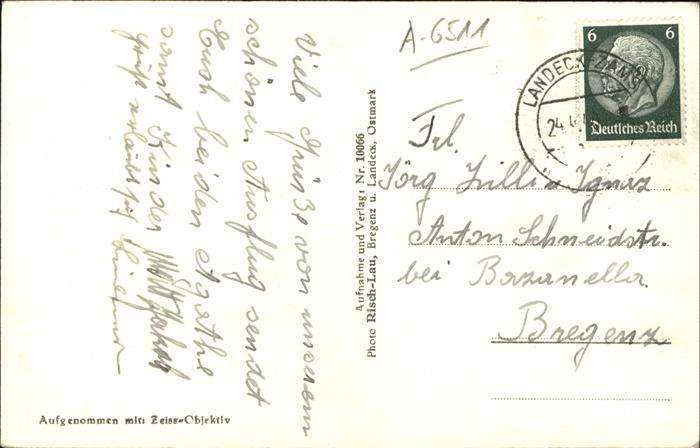 Viele Grüße von unserem
schönen Ausflug sendet
Euch beiden Agathe
samt Kinder
Aufgenommen mit: Zeiss-Objektiv
Aufnahme und Verlag: Nr. 10066
Photo Risch-Lau, Bregenz u. Landeck, Ostmark
A-6511
LANDECK-ZAMS
24.
6 6
Deutsches Reich
Frl.
Jörg Lilli u Ignaz
Anton Schneidstr.
bei Bazanella
Bregenz